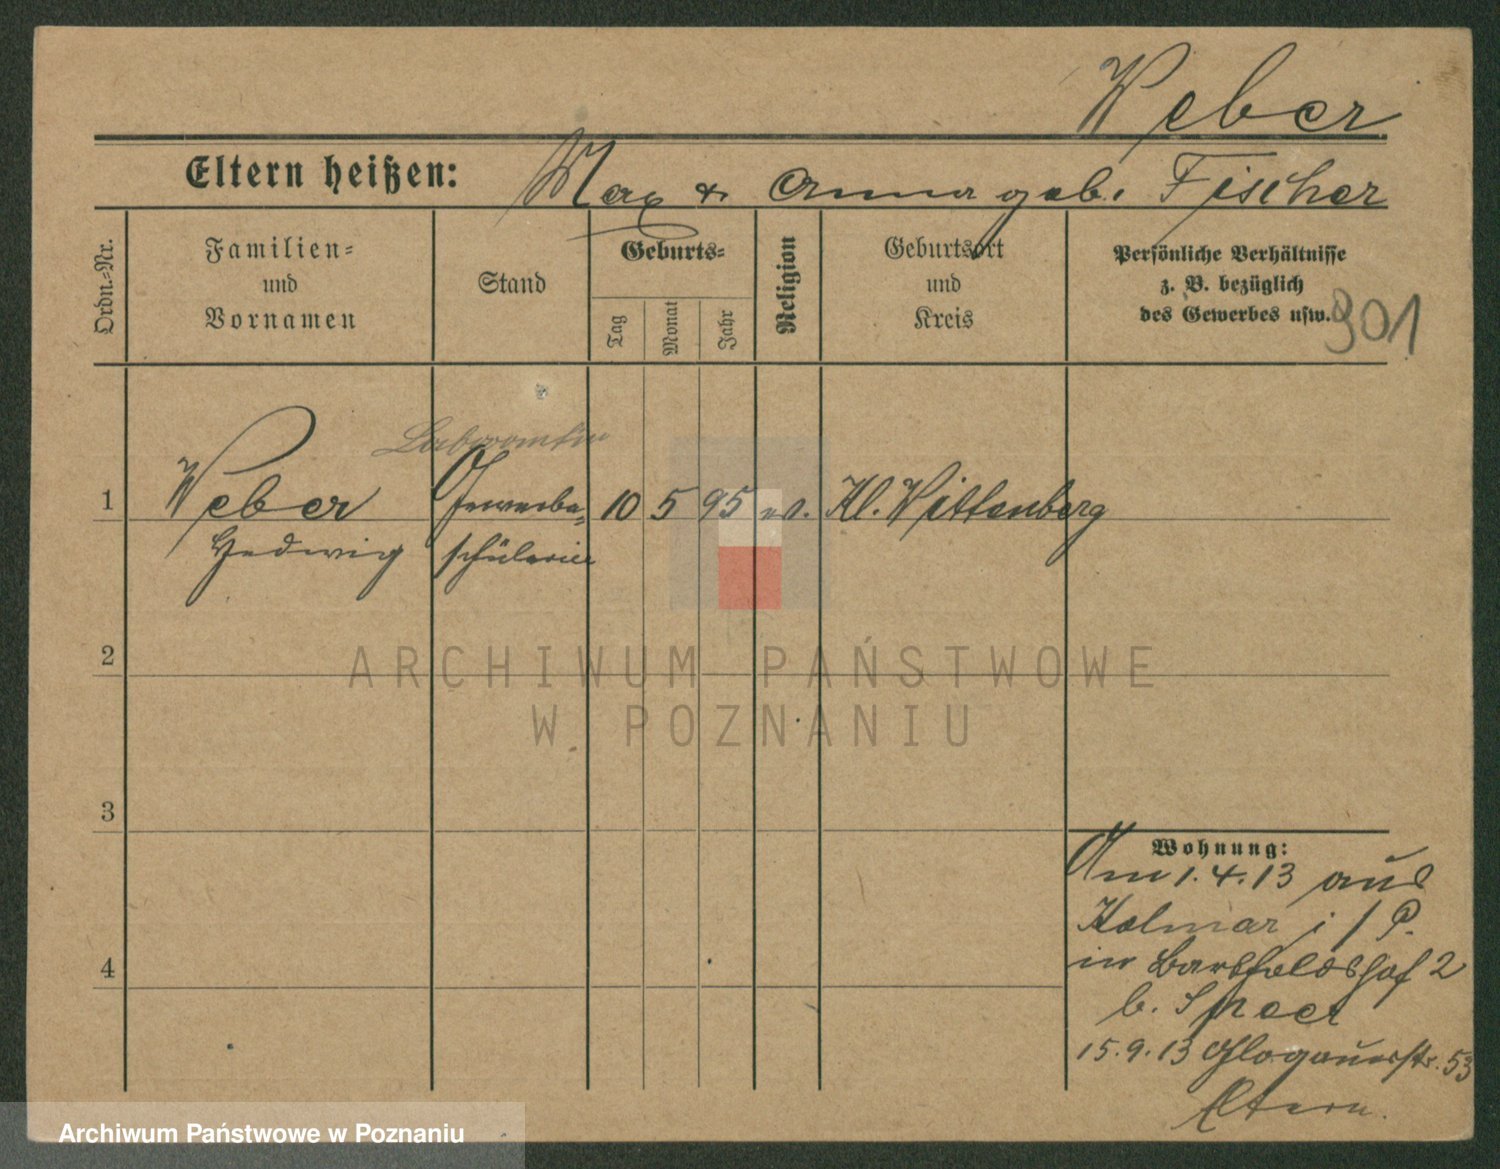 Weber
Eltern heißen: Max & Anna geb. Fischer
Ordn.-Nr.
Familien-
und
Vornamen
Stand
Geburts-
Tag
Monat
Jahr
Religion
Geburtsort
und
Kreis
Persönliche Verhältnisse
z. B. bezüglich
des Gewerbes usw.
901
Laborantin
1 Weber Gewerbe- 10 5 95 ev. Kl. Wittenberg
Hedwig schülerin
2
3
4
ARCHIWUM PAŃSTWOWE
W POZNANIU
Wohnung:
Am 1.4.13 aus
Kolmar i/P.
in Bartholdshof 2
b. Speer
15.9.13 Glogauerstr. 53
Eltern.
Archiwum Państwowe w Poznaniu